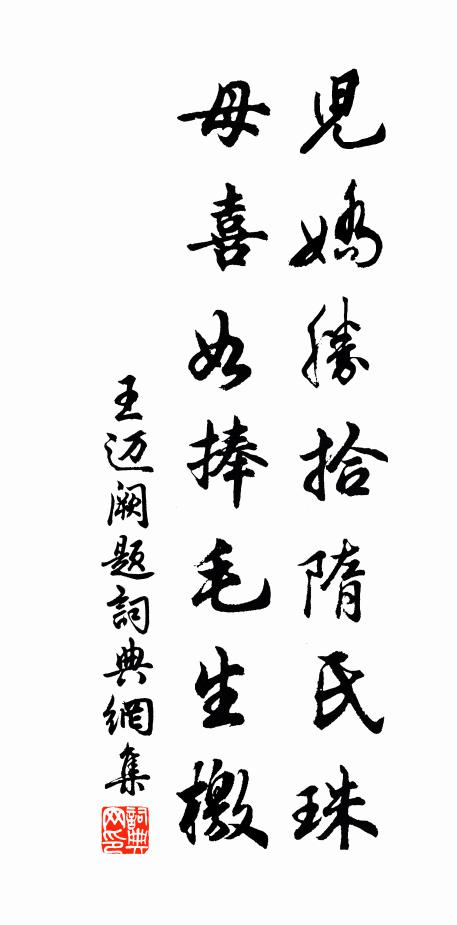 児嬌勝拾隋氏珠
母喜如捧毛生檄
王迈阙题詞典網集
詞典网印